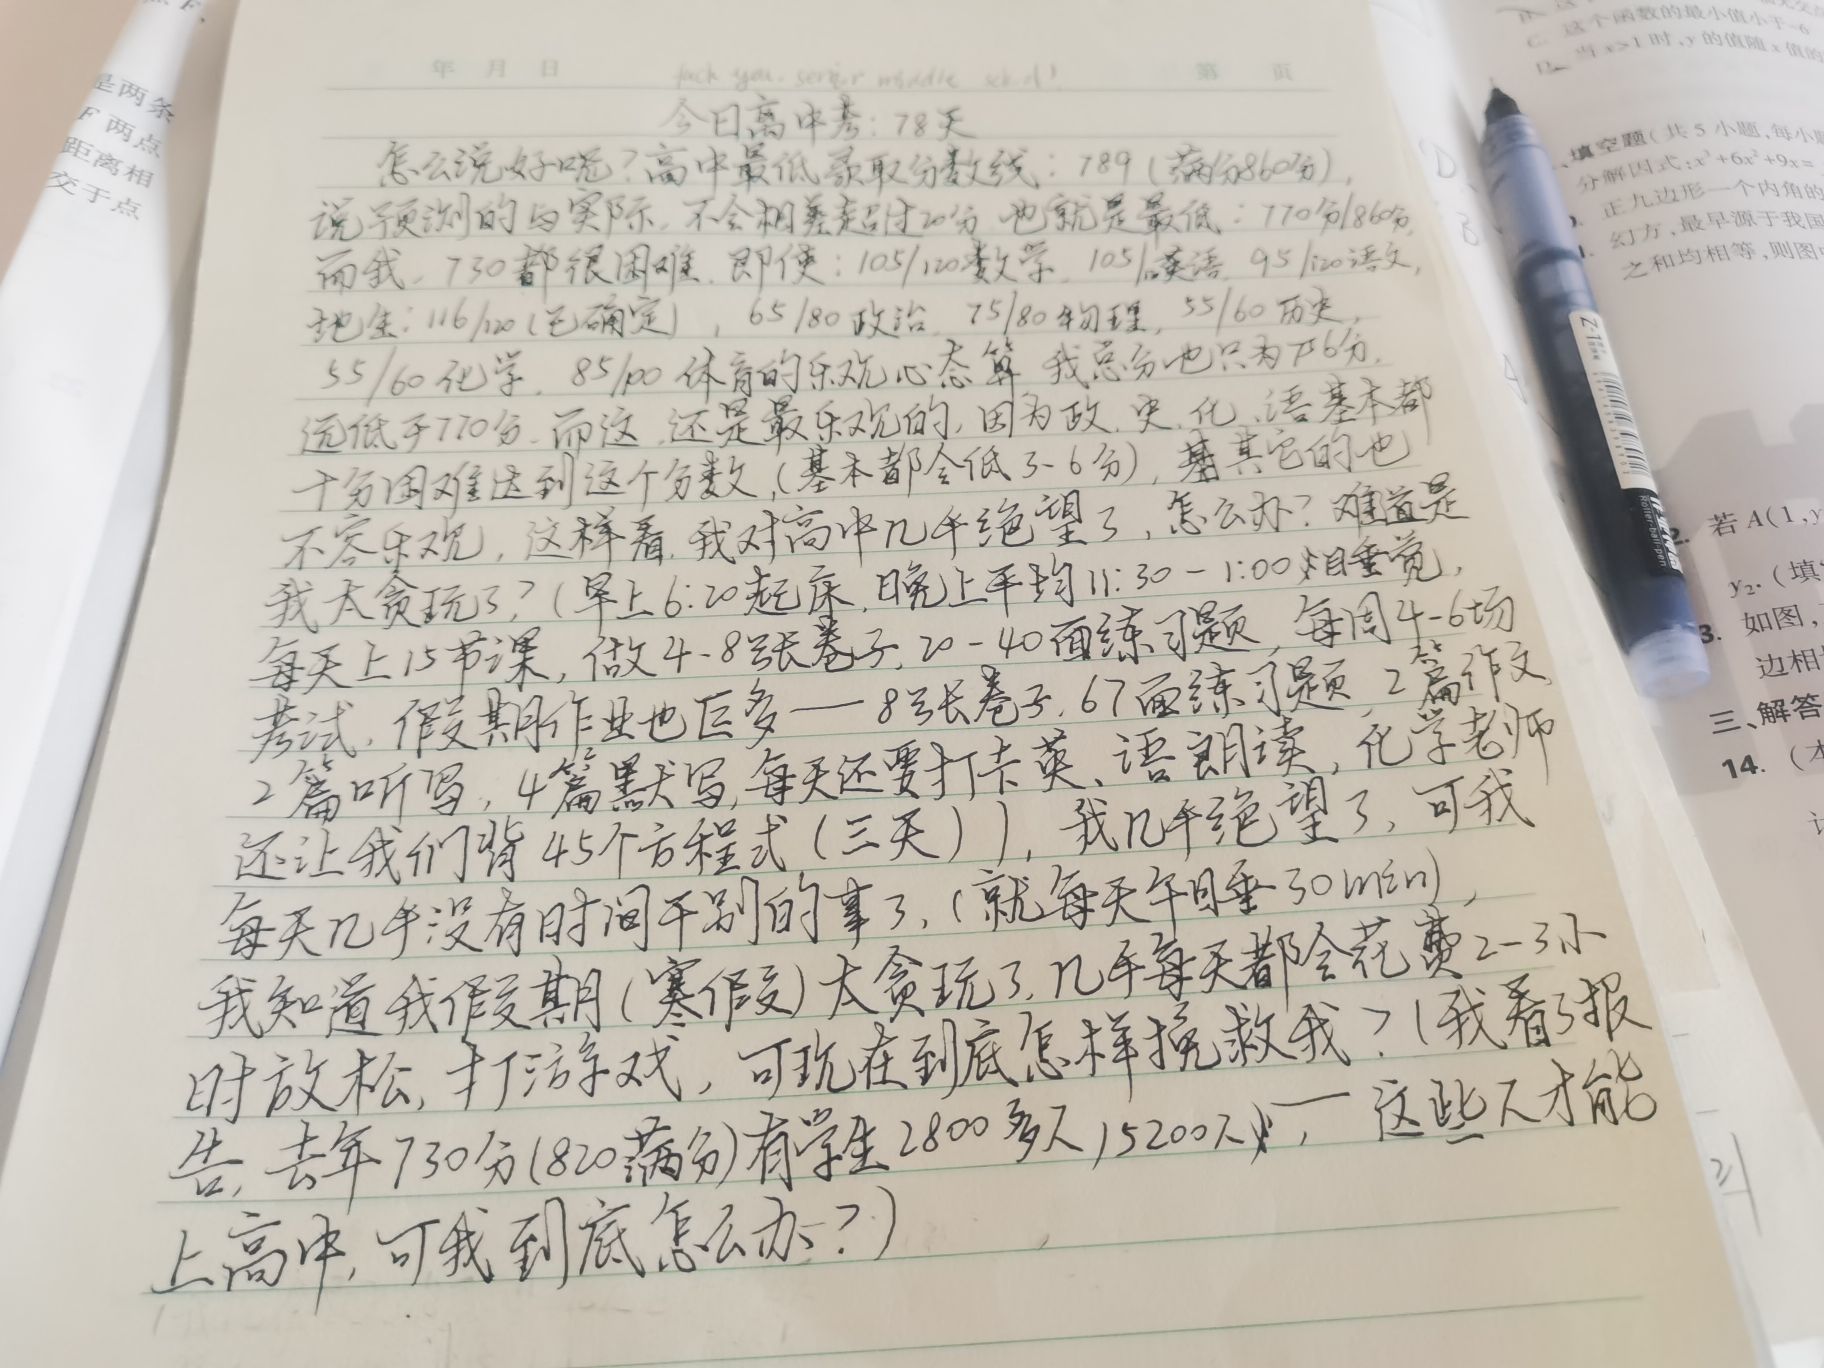 是两条
F 两点
距离相
交于点
年 月 日
第 页
今日离中考：78天
怎么说好呢？高中最低录取分数线：789（满分860分），
说预测的与实际，不会相差超过20分，也就是最低：770分/860分，
而我，730都很困难，即使：105/120数学，105/英语，95/120语文，
地生：116/120（已确定），65/80政治，75/80物理，55/60历史，
55/60化学，85/100体育的乐观心态算，我总分也只为756分，
远低于770分，而这，还是最乐观的，因为政、史、化、语基本都
十分困难达到这个分数，（基本都会低3-6分），其它的也
不容乐观，这样看，我对高中几乎绝望了，怎么办？难道是
我太贪玩了？（早上6:20起床，晚上平均11:30-1:00睡觉，
每天上15节课，做4-8张卷子，20-40面练习题，每周4-6场
考试，假期作业也巨多——8张卷子，67面练习题，2篇作文，
2篇听写，4篇默写，每天还要打卡英、语朗读，化学老师
还让我们背45个方程式（三天）），我几乎绝望了，可我
每天几乎没有时间干别的事了，（就每天午睡30min），
我知道我假期（寒假）太贪玩了，几乎每天都会花费2-3小
时放松，打游戏，可现在到底怎样挽救我？（我看了报
告，去年730分（820满分）有学生2800多人/5200人，——这些人才能
上高中，可我到底怎么办？）
这个函数的最小值小于-6
当x>1时，y的值随x值的
填空题（共5小题，每小题
分解因式：x³+6x²+9x=
正九边形一个内角的
幻方，最早源于我国
之和均相等，则图中
若A(1,y
y₂.（填
3. 如图，
边相
三、解答
14.（本
Roller-ball-pen